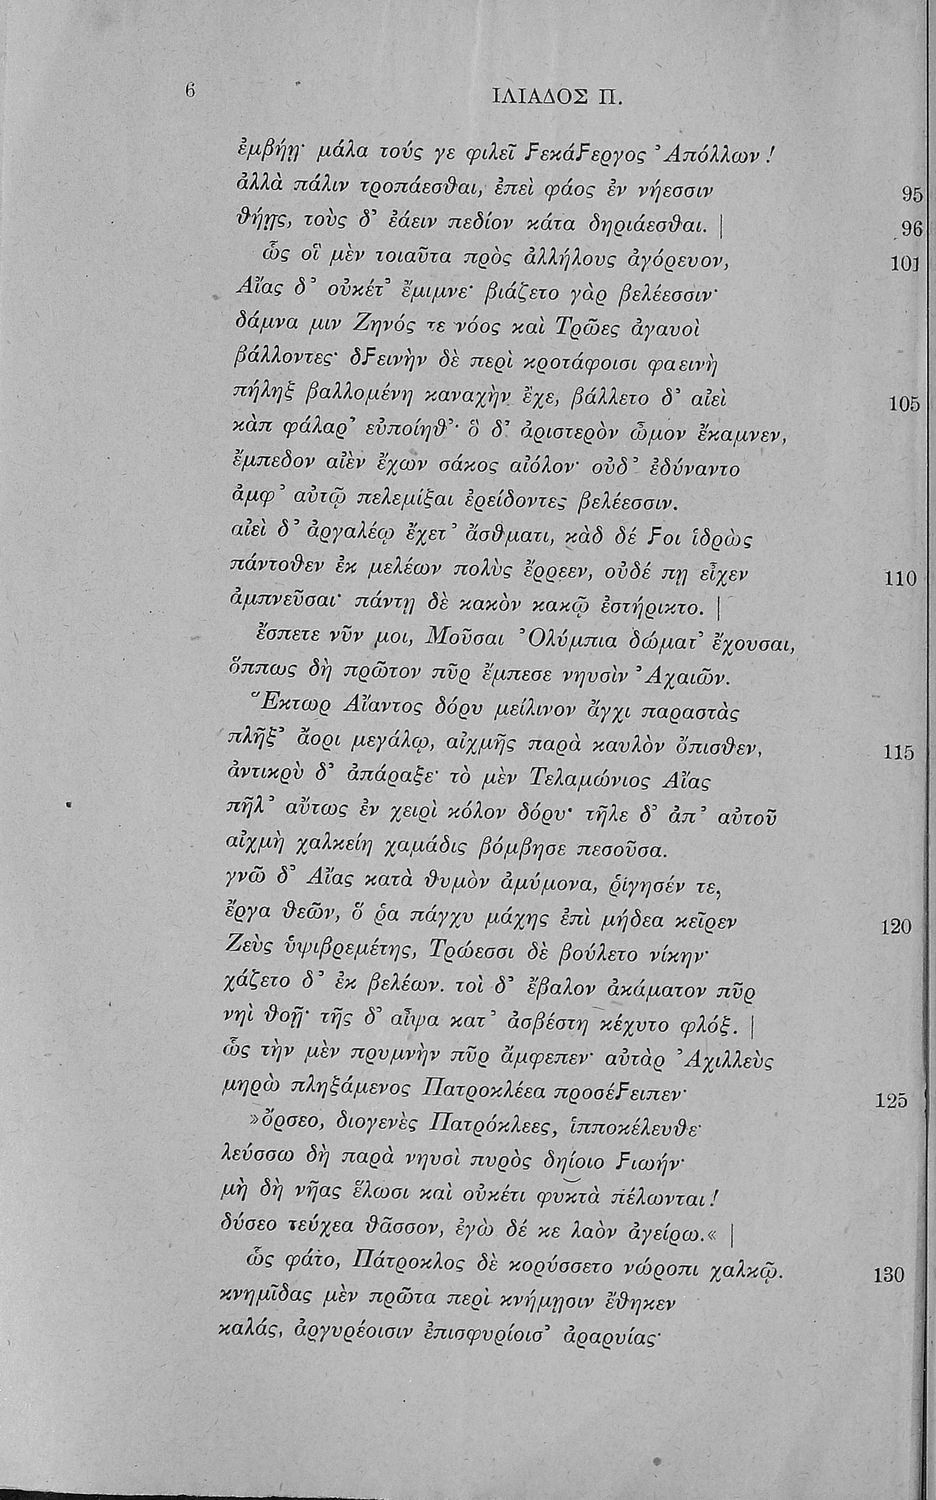 6
ΙΛΙΑΔΟΣ Π.
ἐμβήῃ· μάλα τούς γε φιλεῖ ϝεκάϝεργος Ἀπόλλων!
ἀλλὰ πάλιν τροπάεσθαι, ἐπεὶ φάος ἐν νήεσσιν 95
θήῃς, τοὺς δ' ἐάειν πεδίον κάτα δηριάεσθαι. | 96
ὣς οἳ μὲν τοιαῦτα πρὸς ἀλλήλους ἀγόρευον, 101
Αἴας δ' οὐκέτ' ἔμιμνε· βιάζετο γὰρ βελέεσσιν·
δάμνα μιν Ζηνός τε νόος καὶ Τρῶες ἀγαυοὶ
βάλλοντες· δϝεινὴν δὲ περὶ κροτάφοισι φαεινὴ
πήληξ βαλλομένη καναχὴν ἔχε, βάλλετο δ' αἰεὶ 105
κὰπ φάλαρ' εὐποίηθ'· ὃ δ' ἀριστερὸν ὦμον ἔκαμνεν,
ἔμπεδον αἰὲν ἔχων σάκος αἰόλον· οὐδ' ἐδύναντο
ἀμφ' αὐτῷ πελεμίξαι ἐρείδοντες βελέεσσιν.
αἰεὶ δ' ἀργαλέῳ ἔχετ' ἄσθματι, κὰδ δέ ϝοι ἱδρὼς
πάντοθεν ἐκ μελέων πολὺς ἔρρεεν, οὐδέ πῃ εἶχεν 110
ἀμπνεῦσαι· πάντῃ δὲ κακὸν κακῷ ἐστήρικτο. |
ἔσπετε νῦν μοι, Μοῦσαι Ὀλύμπια δώματ' ἔχουσαι,
ὅππως δὴ πρῶτον πῦρ ἔμπεσε νηυσὶν Ἀχαιῶν.
Ἕκτωρ Αἴαντος δόρυ μείλινον ἄγχι παραστὰς
πλῆξ' ἄορι μεγάλῳ, αἰχμῆς παρὰ καυλὸν ὄπισθεν, 115
ἀντικρὺ δ' ἀπάραξε· τὸ μὲν Τελαμώνιος Αἴας
πῆλ' αὔτως ἐν χειρὶ κόλον δόρυ· τῆλε δ' ἀπ' αὐτοῦ
αἰχμὴ χαλκείη χαμάδις βόμβησε πεσοῦσα.
γνῶ δ' Αἴας κατὰ θυμὸν ἀμύμονα, ῥίγησέν τε,
ἔργα θεῶν, ὅ ῥα πάγχυ μάχης ἐπὶ μήδεα κεῖρεν 120
Ζεὺς ὑψιβρεμέτης, Τρώεσσι δὲ βούλετο νίκην·
χάζετο δ' ἐκ βελέων. τοὶ δ' ἔβαλον ἀκάματον πῦρ
νηὶ θοῇ· τῆς δ' αἶψα κατ' ἀσβέστη κέχυτο φλόξ. |
ὣς τὴν μὲν πρυμνὴν πῦρ ἄμφεπεν· αὐτὰρ Ἀχιλλεὺς
μηρὼ πληξάμενος Πατροκλέεα προσέϝειπεν· 125
»ὄρσεο, διογενὲς Πατρόκλεες, ἱπποκέλευθε·
λεύσσω δὴ παρὰ νηυσὶ πυρὸς δηίοιο ϝιωήν·
μὴ δὴ νῆας ἕλωσι καὶ οὐκέτι φυκτὰ πέλωνται!
δύσεο τεύχεα θᾶσσον, ἐγὼ δέ κε λαὸν ἀγείρω.« |
ὣς φάτο, Πάτροκλος δὲ κορύσσετο νώροπι χαλκῷ. 130
κνημῖδας μὲν πρῶτα περὶ κνήμῃσιν ἔθηκεν
καλάς, ἀργυρέοισιν ἐπισφυρίοισ' ἀραρυίας·